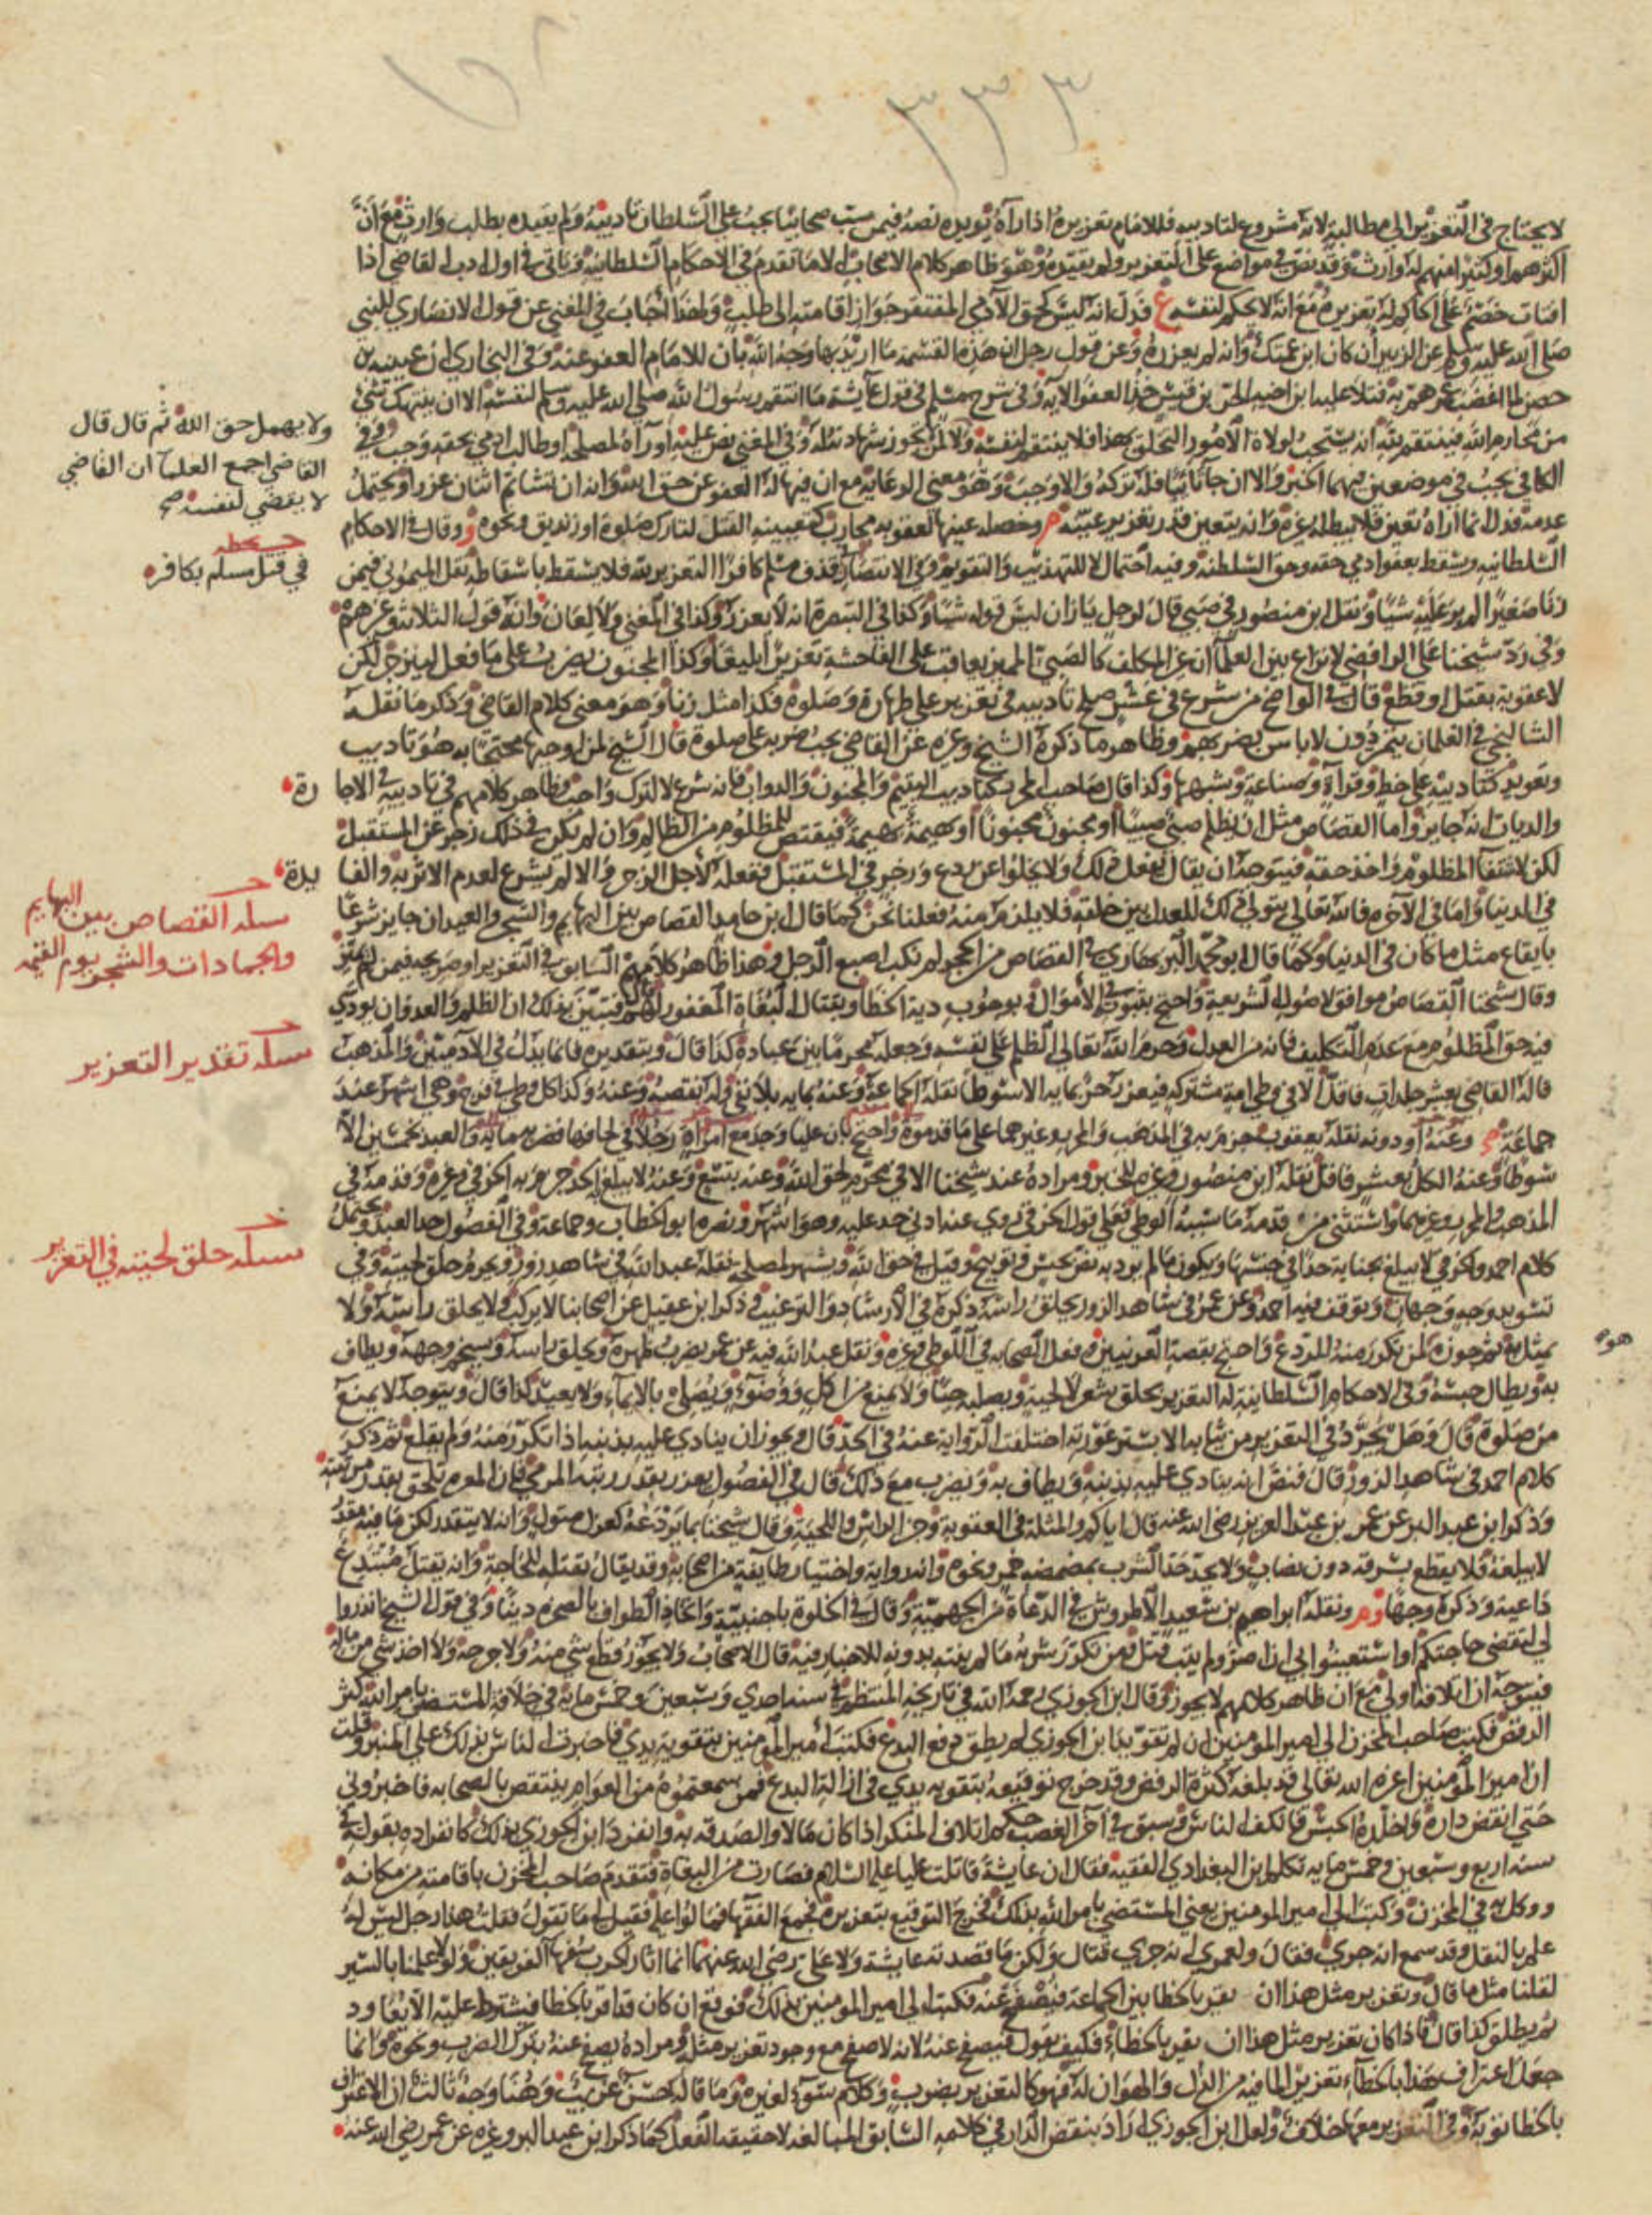 ٣٣٣
لا يحتاج في التعزير الى مطالبة لانه مشروع لتاديبه فللامام تعزيره اذا رآه يؤيده نصه فيمن سب صحابيا يجب على السلطان تاديبه ولم يقيده بطلب وارث مع ان
اكثرهم او كثير منهم له وارث وقد نص في مواضع على التعزير ولم يقيده وهو ظاهر كلام الاصحاب الا ما تقدم في الاحكام السلطانية وياتي في اول ادب القاضي اذا
افتات خصم على الحاكم له تعزيره مع انه لا يحكم لنفسه ع فدل انه ليس كحق الآدمي المفتقر جواز اقامته الى طلب ولهذا اجاب في المغني عن قول الانصاري للنبي
صلى الله عليه وسلم عن الزبير ان كان ابن عمتك وانه لم يعزره وعن قول رجل ان هذه لقسمة ما اريد بها وجه الله بان للامام العفو عنه وفي البخاري ان عيينة بن
حصن لما اغضب عمر هم به فتلا عليه ابن اخيه الحر بن قيس خذ العفو الآية وفي شرح مسلم في قول عايشة ما انتقم رسول الله صلى الله عليه وسلم لنفسه الا ان ينتهك شي
من محارم الله فينتقم لله انه يستحب لولاة الامور التخلق بهذا فلا ينتقم لنفسه ولا لمن لا يجوز شهادته له وفي المغني نص عليه او رآه لمصلحة او طالب ادمي بحقه وجب وفي
الكافي يجب في موضعين فيهما الخبر والا ان جا تائبا فله تركه والا وجب وهو معنى الرعاية مع ان فيها له العفو عن حق الله وانه ان تشاتم اثنان عزرا ويحتمل
عدمه فدل انما اراه تعين فلا يبطله غيره وانه يتعين قدر تعزير عينه م وخصه عينها لعقوبة محارب كتعيينه القتل لتارك صلوة او زنديق ونحوه و وقال في الاحكام
السلطانية ويسقط بعفو ادمي حقه وحق السلطنة وفيه احتمال لا للتهذيب والتقويم وفي الانتصار قذف مسلم كافرا التعزير لله فلا يسقط باسقاطه نقل الميموني فيمن
زنا صغيرا لم ير عليه شيئا ونقل ابن منصور في صبي قال لرجل يا زان ليس قوله شيئا وكذا في التبصرة انه لا يعزر وكذا في المغني ولا لعان وانه قول الثلاثة وغيرهم
وفي رد شيخنا على الرافضي لا نزاع بين العلما ان غير المكلف كالصبي المميز يعاقب على الفاحشة تعزيرا بليغا وكذا المجنون يضرب على ما فعل لينزجر لكن
لا عقوبة بقتل او قطع قال في الواضح من شرع في عشر صلح تاديبه في تعزير على طهارة وصلوة فكذا مثل زنا وهو معنى كلام القاضي وذكر ما نقله
الشالنجي في الغلمان يتمردون لا باس بضربهم وظاهر ما ذكره الشيخ وغيره عن القاضي يجب ضربه على صلوة قال الشيخ لمن اوجبها محتجا به هو تاديب
وتعويد كتاديبه على خط وقراءة وصناعة وشبهها وكذا قال صاحب المحرر كتاديب اليتيم والمجنون والدواب فانه شرع لا لترك واجب فظاهر كلامهم في تاديبه في الاجا رة
والديات انه جايز واما القصاص مثل ان يظلم صبي صبيا او مجنون مجنونا او بهيمة بهيمة فيقتص للمظلوم من الظالم وان لم يكن في ذلك زجر عن المستقبل
لكن لاشتفا المظلوم واخذ حقه فيتوجه ان يقال يفعل ذلك ولا يخلوا عن ردع وزجر في المستقبل ففعله لاجل الزجر والا لم يشرع لعدم الاثر به والفا يدة
في الدنيا واما في الآخرة فالله تعالى يتولى ذلك للعدل بين خلقه فلا يلزم منه فعلنا نحن كما قال ابن حامد القصاص بين البهايم والشجر والعيدان جايز شرعا
بايقاع مثل ما كان في الدنيا وكما قال ابو محمد البربهاري في القصاص من الحجر لم نكب اصبع الرجل وهذا ظاهر كلامهم السابق في التعزير او صريحه فيمن لم يميز
وقال شيخنا القصاص موافق لاصول الشريعة واحتج بثبوته في الاموال وبوجوب دية الخطا وبقتال البغاة المغفور لهم فتبين بذلك ان الظلم والعدوان يودي
فيه حق المظلوم مع عدم التكليف فانه من العدل وحرم الله تعالى الظلم على نفسه وجعله محرما بين عباده كذا قال وبتقديره فانما يدل في الآدميين والمذهب
قاله القاضي بعشر جلدات فاقل الا في وطي امة مشتركة فيعزر حر بماية الا سوطا نقله الجماعة وعنه بماية بلا نفي وله نقصه وعنه وكذا كل وطي في فرج وهي اشهر عند
جماعة م وعنه او دونه نقله يعقوب جزم به في المذهب والمحرر وغيرهما على ما قدموه واحتج بان عليا وجد مع امراة رجلا في لحافها فضربه ماية والعبد بخمسين الا
سوطا وعنه الكل بعشر فاقل نقله ابن منصور وغيره للخبر ومراده عند شيخنا الا في محرم لحق الله وعنه بتسع وعنه لا يبلغ الحد جزم به الخرقي وغيره وقدمه في
المذهب والمحرر وغيرهما واستثنى من قدمه ما سببه الوطي فعلى قول الخرقي روي عنه ادنى حد عليه وهو اشهر ونصره ابو الخطاب وجماعة وفي الفصول حد العبد ويحتمل
كلام احمد والخرقي لا يبلغ بجناية حدا في جنسها ويكون ما لم يرد به نص بحبس وتوبيخ وقيل في حق الله ويشهر لمصلحة نقله عبد الله في شاهد زور ويحرم حلق لحيته وفي
تسويد وجهه وجهان ويوقف فيه احمد وعن عمر في شاهد الزور يحلق راسه ذكره في الارشاد والترغيب وذكر ابن عقيل عن اصحابنا لا يركب ولا يحلق راسه ولا
يمثل به ثم جوزه لمن تكرر منه للردع واحتج بقصة العرنيين وفعل الصحابة في اللوطي وغيره ونقل عبد الله فيه عن عمر يضرب ظهره ويحلق راسه ويسخم وجهه ويطاف
به ويطال حبسه وفي الاحكام السلطانية له التعزير بحلق شعر لا لحية وبصلبه حيا ولا يمنع من اكل ووضوء ويصلي بالايماء ولا يعيد كذا قال ويتوجه لا يمنع
من صلوة قال وهل يجرد في التعزير من ثيابه الا ستر عورته اختلفت الرواية عنه في الحد قال ويجوز ان ينادي عليه بذنبه اذا تكرر منه ولم يقلع ثم ذكر
كلام احمد في شاهد الزور قال فنص انه ينادي عليه بذنبه ويطاف به ويضرب مع ذلك قال في الفصول يعزر بقدر رتبة المرمي فان المعرة تلحق بقدر مرتبته
وذكر ابن عبد البر عن عمر بن عبد العزيز رضي الله عنه قال اياكم والمثلة في العقوبة وجز الراس واللحية وقال شيخنا بما يردعه كعزل متول وانه لا يتقدر لكن ما فيه مقدر
لا يبلغه فلا يقطع بسرقة دون نصاب ولا يحد حد الشرب بمضمضة خمر ونحوه وانه رواية واختيار طايفة من اصحابه وقد يقال بقتله للحاجة وانه يقتل مبتدع
داعية وذكره وجها وم ونقله ابراهيم بن سعيد الاطروش في الدعاة من الجهمية وقال في الخلوة باجنبية واتخاذ الطواف بالصخرة دينا وفي قول الشيخ انذروا
لي لتقضى حاجتكم او استعينوا بي ان اصر ولم يتب قتل ومن تكرر شربه ما لم ينته بدونه للاخبار فيه قال الاصحاب ولا يجوز قطع شي منه ولا جرحه ولا اخذ شي من ماله
فيتوجه ان اتلافه اولى مع ان ظاهر كلامهم لا يجوز وقال ابن الجوزي رحمه الله في تاريخه المنتظم في سنة احدى وسبعين وخمس ماية في خلافة المستضي بامر الله كثر
الرفض فكتب صاحب المخزن الى امير المومنين ان لم تقو يد ابن الجوزي لم يطق دفع البدع فكتب امير المومنين بتقوية يدي فاخبرت الناس بذلك على المنبر وقلت
ان امير المومنين اعزه الله تعالى قد بلغه كثرة الرفض وقد خرج توقيعه بتقوية يدي في ازالة البدع فمن سمعتموه من العوام ينتقص بالصحابة فاخبروني
حتى انقض داره واخلده الحبس فانكف الناس وسبق في آخر الغصب حكم اتلاف المنكر اذا كان مالا والصدقة به وانفرد ابن الجوزي بذلك كانفراده بقوله في
سنة اربع وسبعين وخمس ماية تكلم ابن البغدادي الفقيه فقال ان عايشة قاتلت عليا عليه السلام فصارت من البغاة فتقدم صاحب المخزن باقامته من مكانه
ووكل به في المخزن وكتب الى امير المومنين يعني المستضي بامر الله بذلك فخرج التوقيع بتعزيره فجمع الفقها فمالوا عليه فقيل لي ما تقول فقلت هذا رجل ليس له
علم بالنقل وقد سمع انه جرى قتال ولعمري انه جرى قتال ولكن ما قصدته عايشة ولا علي رضي الله عنهما انما اثار الحرب سفها الفريقين ولولا علمنا بالسير
لقلنا مثل ما قال وتعزير مثل هذا ان يقر بالخطا بين الجماعة فيصفح عنه فكتب الى امير المومنين بذلك فوقع ان كان قد اقر بالخطا فيشترط عليه الا يعاود
ثم يطلق كذا قال فاذا كان تعزير مثل هذا ان يقر بالخطاء فكيف يقول فيصفح عنه لانه لا صفح مع وجود تعزير مثله ومراده يصفح عنه بترك الضرب ونحوه وانما
جعل اعتراف هذا بالخطاء تعزيرا لما فيه من الذل والهوان له فهو كالتعزير بضرب وكلام سوء لغيره وما قاله حسن غريب وهنا وجه ثالث ان الاعتراف
بالخطا توبة وفي التعزير معها خلاف ولعل ابن الجوزي اراد بنقض الدار في كلامه السابق المبالغة لا حقيقة الفعل كما ذكر ابن عبد البر وغيره عن عمر رضي الله عنه
ولا يهمل حق الله ثم قال قال
القاضي اجمع العلما ان القاضي
لا يقضي لنفسه صح
في قتل مسلم بكافر
مسلة القصاص بين البهايم
والجمادات والشجر يوم القيمة
مسلة تقدير التعزير
مسلة حلق لحيته في التعزير
هو